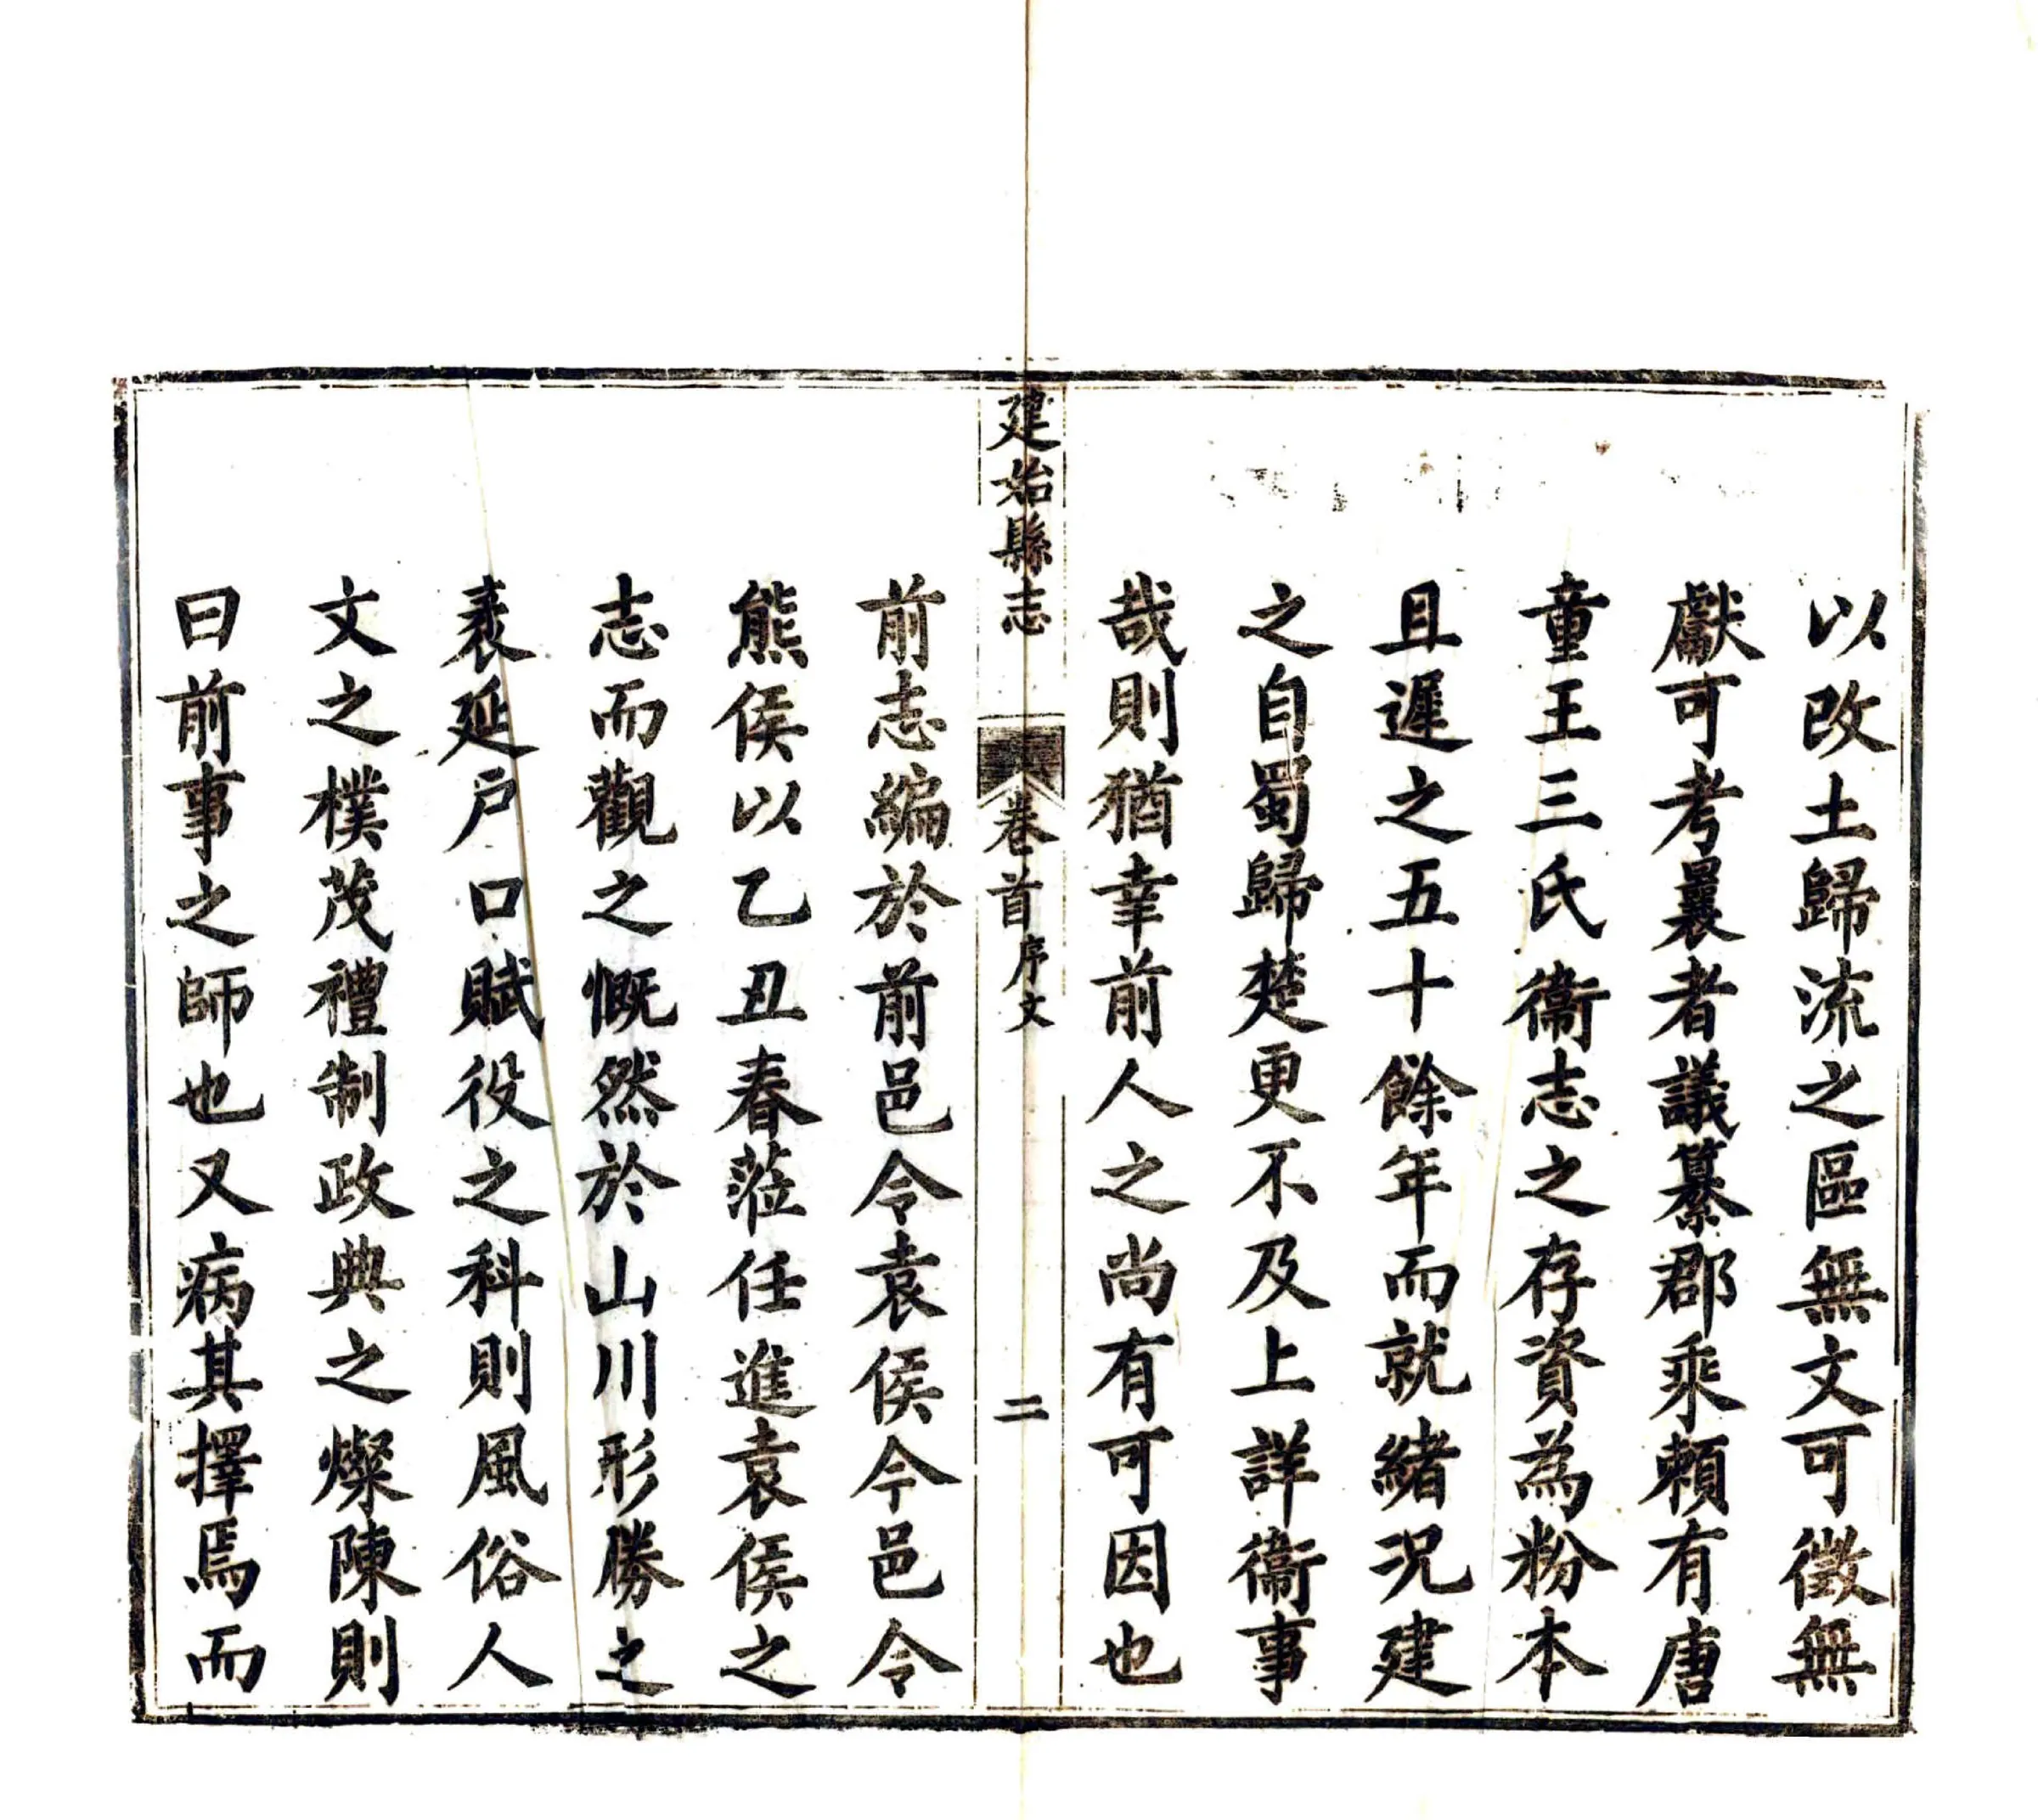 以改土歸流之區無文可徵無
獻可考曩者議纂郡乘賴有唐
童王三氏衞志之存資為粉本
且遲之五十餘年而就緒況建
之自蜀歸楚更不及上詳衞事
哉則猶幸前人之尚有可因也
建始縣志 卷首 序文 二
前志編於前邑令袁侯今邑令
熊侯以乙丑春蒞任進袁侯之
志而觀之慨然於山川形勝之
袤延户口賦役之科則風俗人
文之樸茂禮制政典之燦陳則
曰前事之師也又病其擇焉而